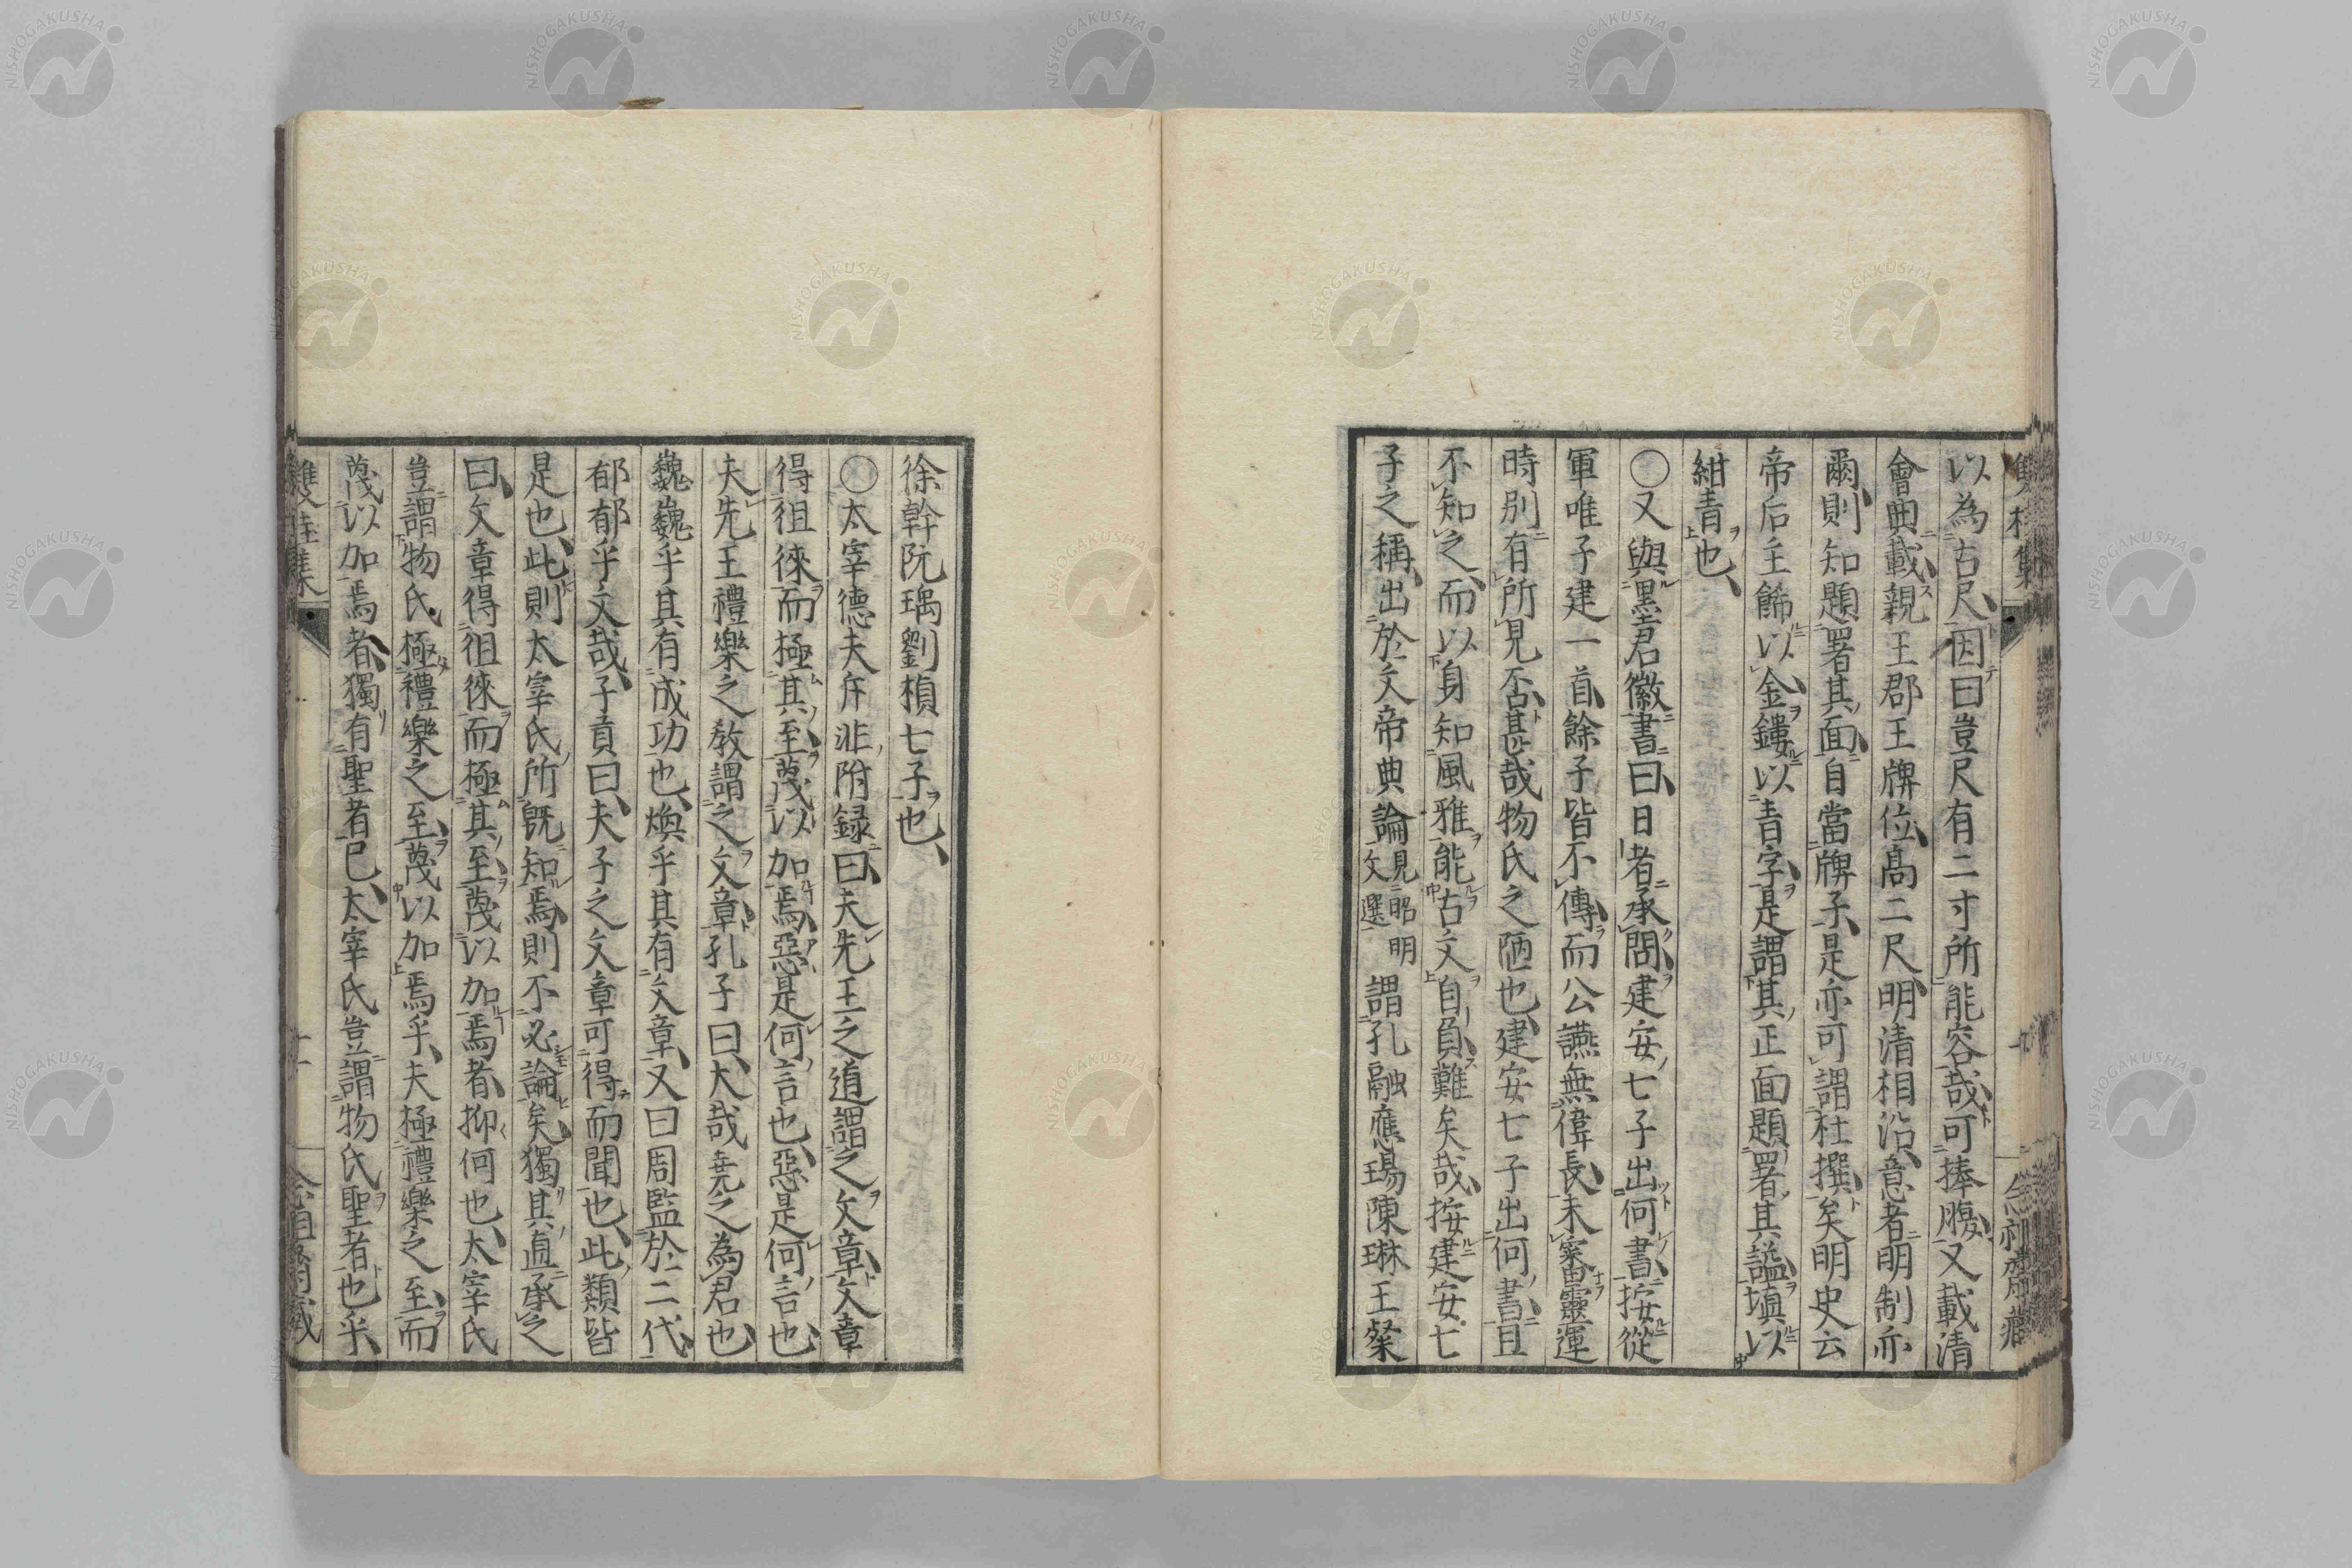 以為古尺因曰豈尺有二寸所能容哉可捧腹又載清
會典載親王郡王牌位高二尺明清相沿意者明制亦
爾則知題署其面自當牌子是亦可謂杜撰矣明史云
帝后主飾以金鏤以青字是謂其正面題署其謚填以
紺青也
○又與墨君徽書曰日者承問建安七子出何書按從
軍唯子建一首餘子皆不傳而公讌無偉長未審靈運
時別有所見否甚哉物氏之陋也建安七子出何書且
不知之而以身知風雅能古文自負難矣哉按建安七
子之稱出於文帝典論見昭明文選謂孔融應瑒陳琳王粲
徐幹阮瑀劉楨七子也
○太宰德夫斥非附録曰夫先王之道謂之文章文章
得徂徠而極其至蔑以加焉惡是何言也惡是何言也
夫先王禮樂之教謂之文章孔子曰大哉尭之為君也
巍巍乎其有成功也煥乎其有文章又曰周監於二代
郁郁乎文哉子貢曰夫子之文章可得而聞也此類皆
是也此則太宰氏所既知焉則不必論矣獨其直承之
曰文章得徂徠而極其至蔑以加焉者抑何也太宰氏
豈謂物氏極禮樂之至蔑以加焉乎夫極禮樂之至而
蔑以加焉者獨有聖者已太宰氏豈謂物氏聖者也乎
NISHOGAKUSHA